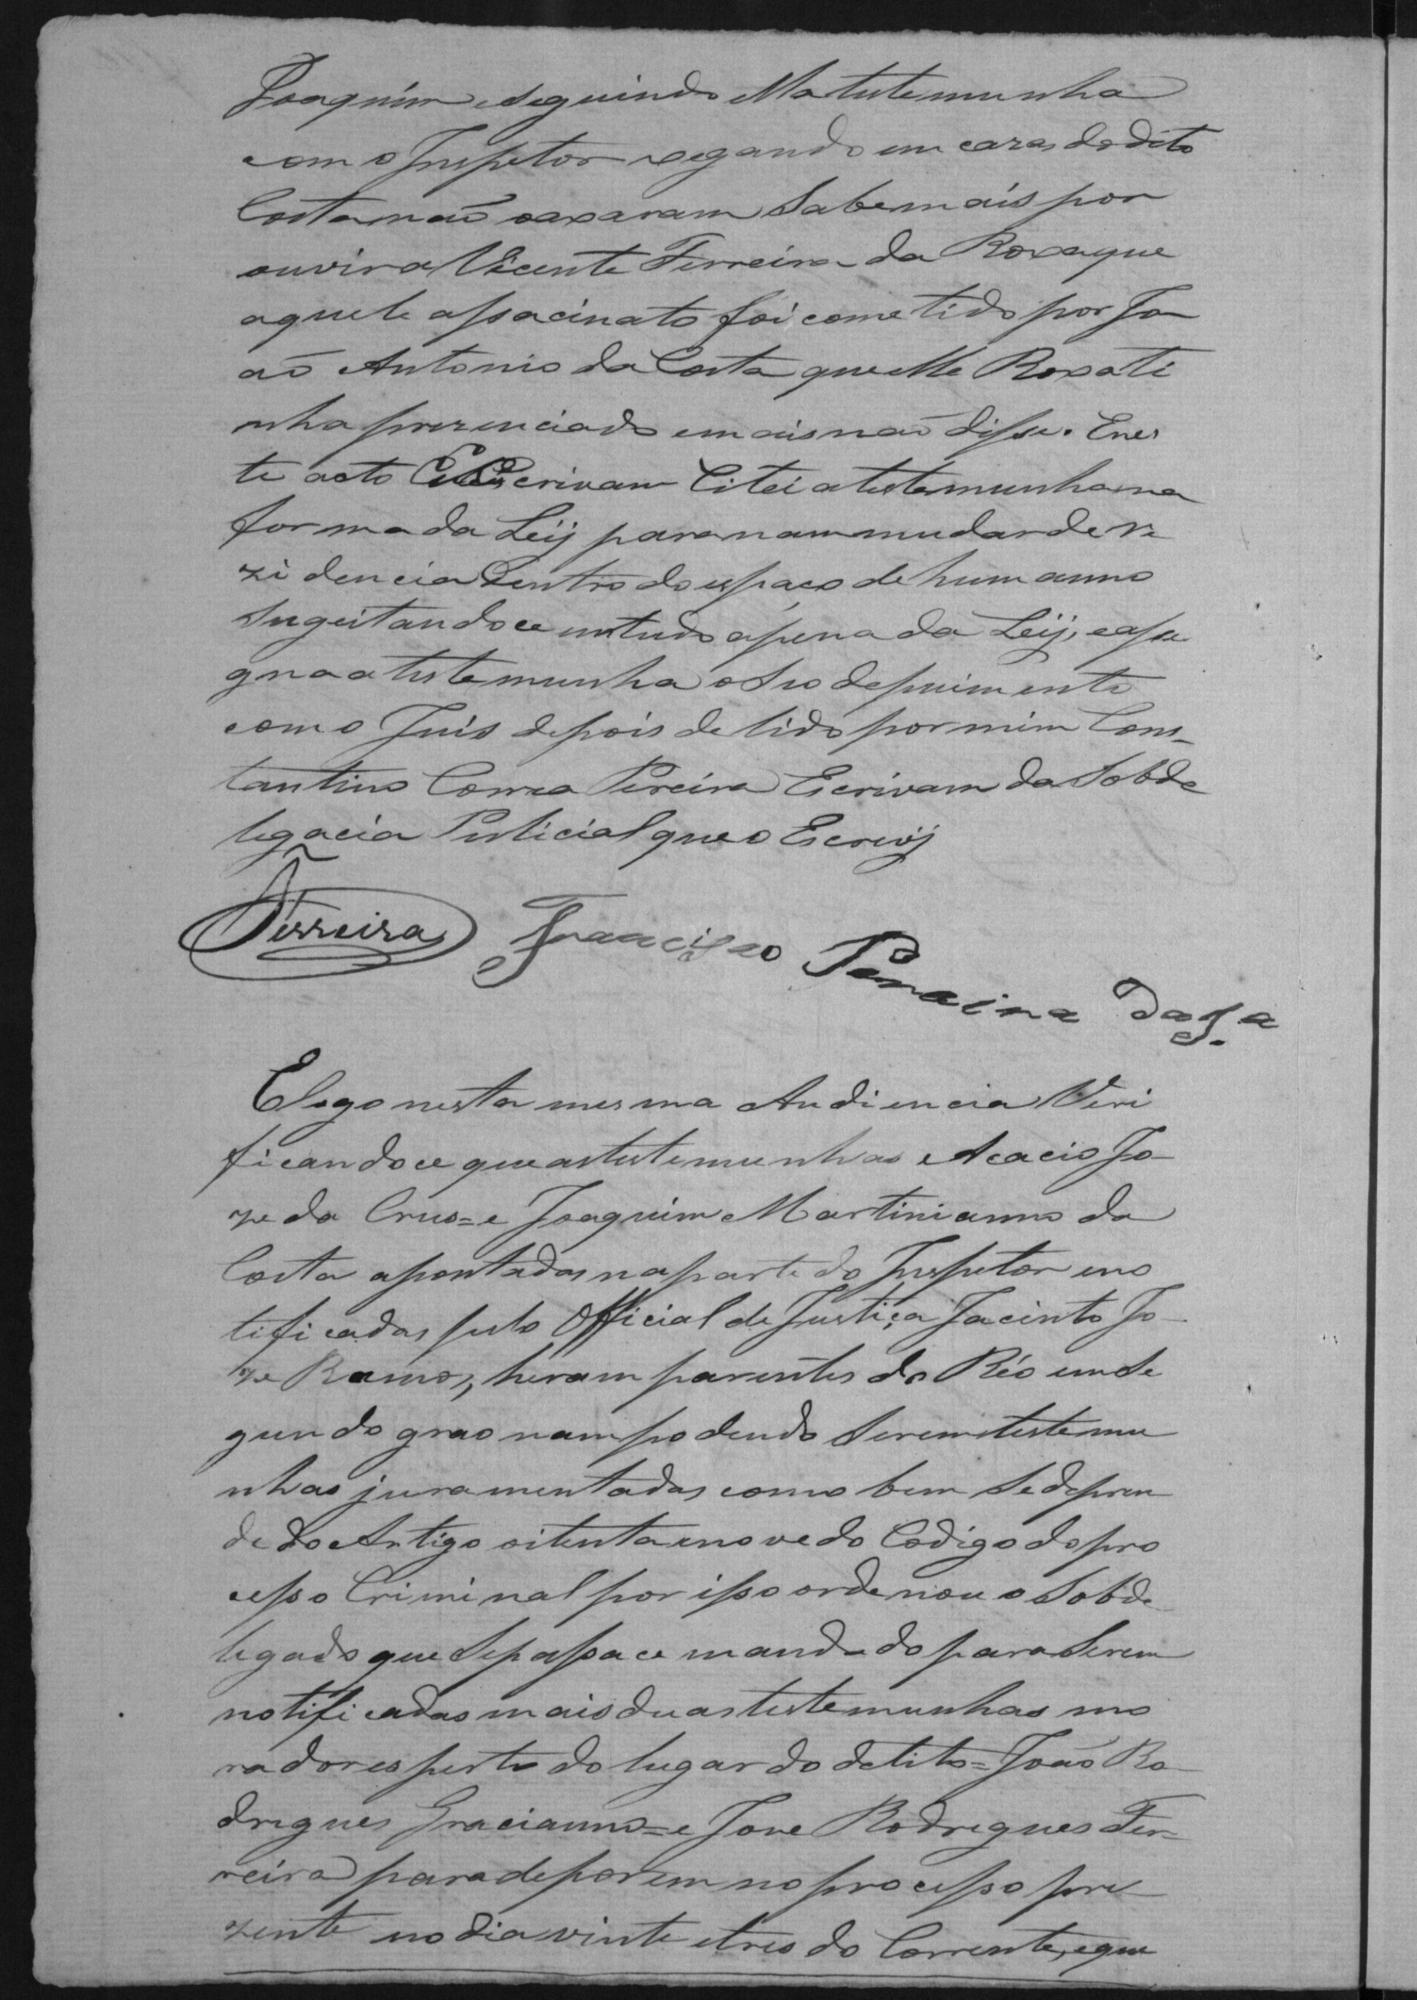 Joaquim, eseguindo ella testemunha
com o Inspetor xegando em caza do dito
Costa naõ oaxaram Sabe mais por
ouvir a Vicente Ferreira da Roxa que
aquele assacinato foi cometido por Jo
aõ Antonio da Costa que elle Roxa ti
nha prezenciado e mais naõ disse. E nes
te acto Eu Escrivam Citei a testemunha na
forma da Leij para nam mudar de re
zidencia dentro do espaço de hum anno
sugeitandoce em tudo a pena da Leij, e assi
gna a testemunha o Seo depuimento
com o Juis depois de lido por mim Cons-
tantino Correa Pereira Escrivam da Sobde
legacia Pulicial que o Escrivij
Ferreira Francisco Pereira da S.ª
E logo nesta mesma Audiencia Veri
ficandoce que as testemunhas Acacio Jo-
ze da Crus = e Joaquim Martinianno da
Costa apontadas na parte do Inspetor e no
tificadas pelo Official de Justiça Jacinto Jo-
ze Ramos, heram parentes do Réo em Se
gundo grao nam podendo Serem testemu
nhas juramentadas como bem Se depren
de do Artigo oitenta e nove do Codigo do pro
cesso Criminal por isso ordenou o Sobde
legado que Se passace mandado para Serem
notificadas mais duas testemunhas mo
radores perto do lugar do delito = João Ro
drigues Gracianno = e Joze Rodrigues Fer-
reira para deporem no processo pre
zente no dia vinte e tres do Corrente, e que